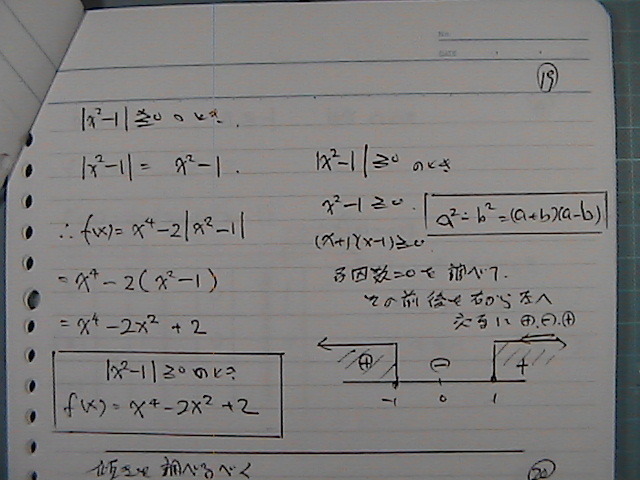 No.
DATE
⑲
|x²-1|≧0のとき.
|x²-1| = x²-1.
∴ f(x) = x⁴-2|x²-1|
= x⁴-2(x²-1)
= x⁴-2x²+2
|x²-1|≧0のとき
f(x) = x⁴-2x²+2
|x²-1|≧0のとき
x²-1≧0.
a²-b²=(a+b)(a-b)
(x+1)(x-1)≧0
各因数=0を調べて.
その前後を右から左へ
交互に⊕,⊖,⊕
⊕ ⊖ +
-1 0 1
傾きを調べるべく
⑳